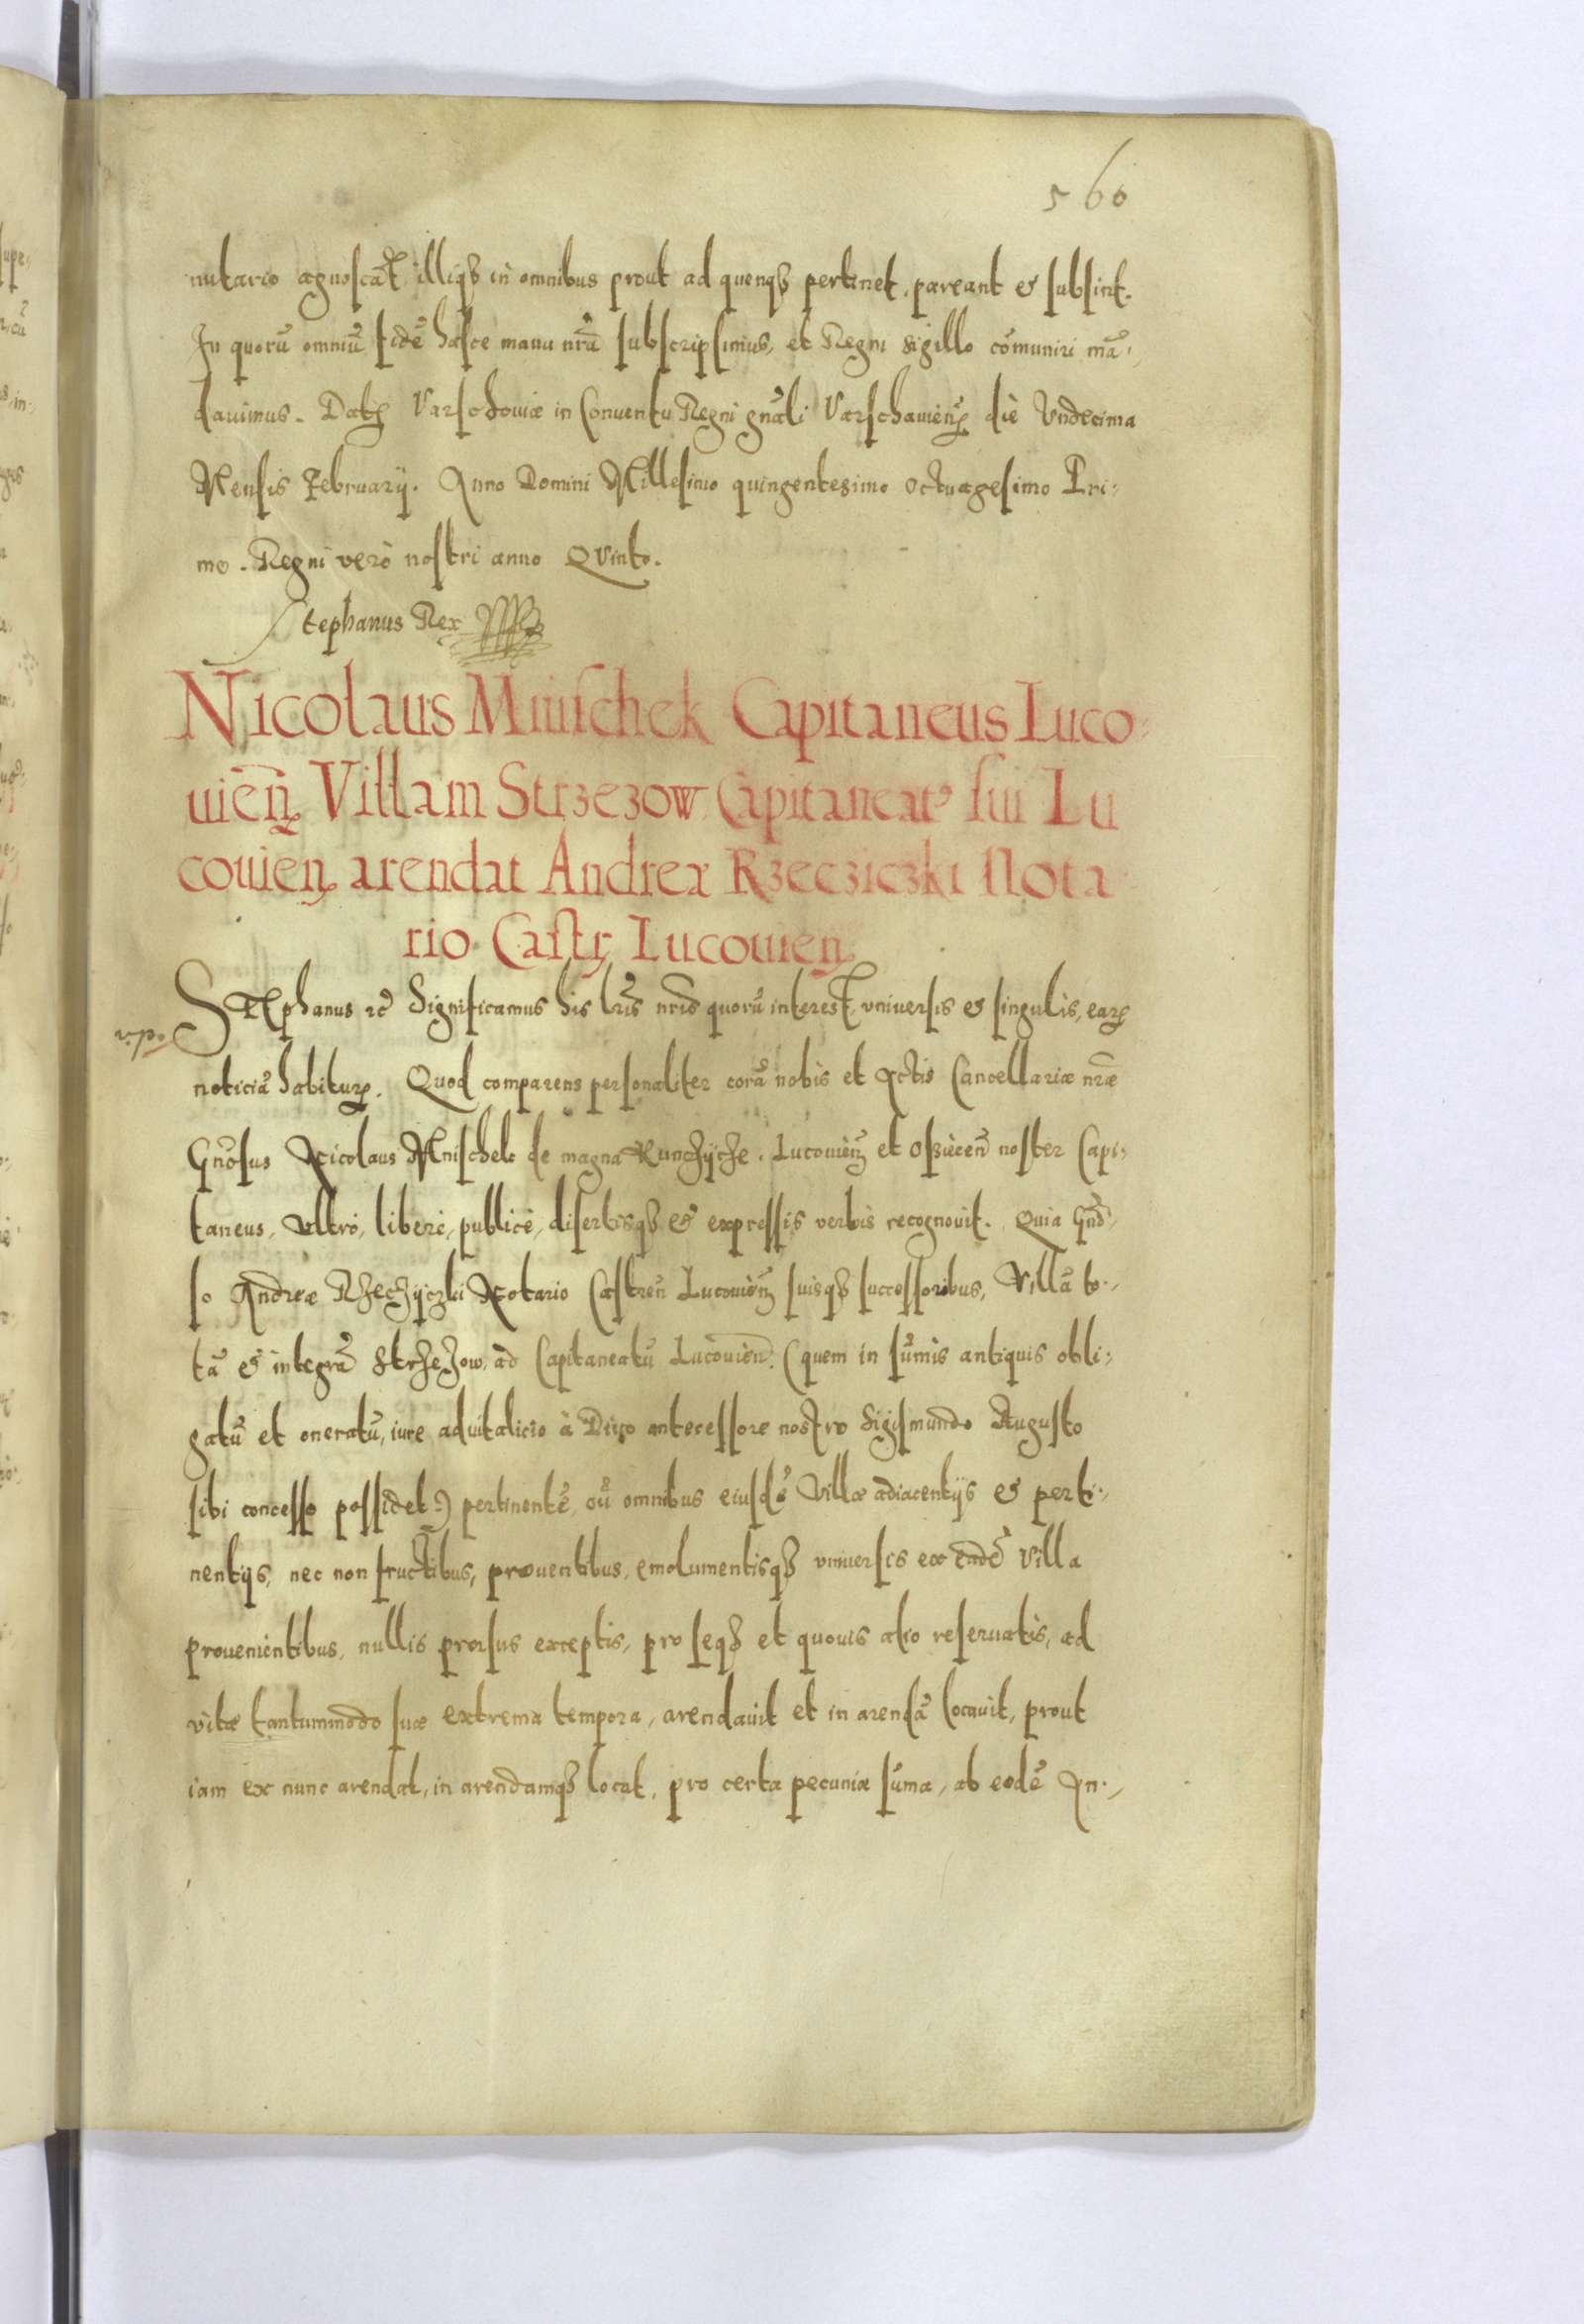 560
nutario agnoscāt, illiqȝ in omnibus prout ad quenqȝ pertinet, pareant & subsint.
In quorū omniū fidē hasce manu nrā subscripsimus, et Regni sigillo cōmuniri mā-
dauimus. Datꝭ Varschouiæ in Conuentu Regni gnāli Varschauienꝭ die Vndecima
Mensis February. Anno Domini Millesimo quingentesimo octuagesimo Pri-
mo. Regni verò nostri anno Qvinto.
Stephanus Rex
Nicolaus Mnischek Capitaneus Luco-
uien̄ꝭ Villam Strzezow Capitaneatꝰ sui Lu
couienꝭ arendat Andreæ Rzecziczki Nota
rio Castrꝭ Lucouienꝭ
v.p.
STephanus ꝛc̄ Significamus his lrīs nrīs quorū interest, vniuersis & singulis, earꝝ
noticiā habiturꝭ. Quod comparens personaliter corā nobis et Actis Cancellariæ nrāe
Gnōsus Nicolaus Mnischek de magna Kunczycze. Lucouien̄ꝭ et Osziecen̄ noster Capi-
taneus, vltrò, liberè, publicè, disertisqȝ & expressis verbis recognouit. Quia Gnō-
so Andreæ Rzeczyczki Notario Castren̄ Lucouien̄ꝭ suisqȝ successoribus, Villā to-
tā & integrā Strzezow, ad Capitaneatū Lucouien̄. (quem in sūmis antiquis obli-
gatū et oneratū, iure aduitalicio à Diuo antecessore nostro Sigismundo Augusto
sibi concesso possidet:) pertinentē, cū omnibus eiusdē Villæ adiacentijs & perti-
nentijs, nec non fructibus, prouentibus, emolumentisqȝ vniuersis ex eadē Villa
prouenientibus, nullis prorsus exceptis, pro seqȝ et quouis alio reseruatis, ad
vitæ tantummodo suæ extrema tempora, arendauit et in arendā locauit, prout
iam ex nunc arendat, in arendamqȝ locat, pro certa pecuniæ sūma, ab eodē An-